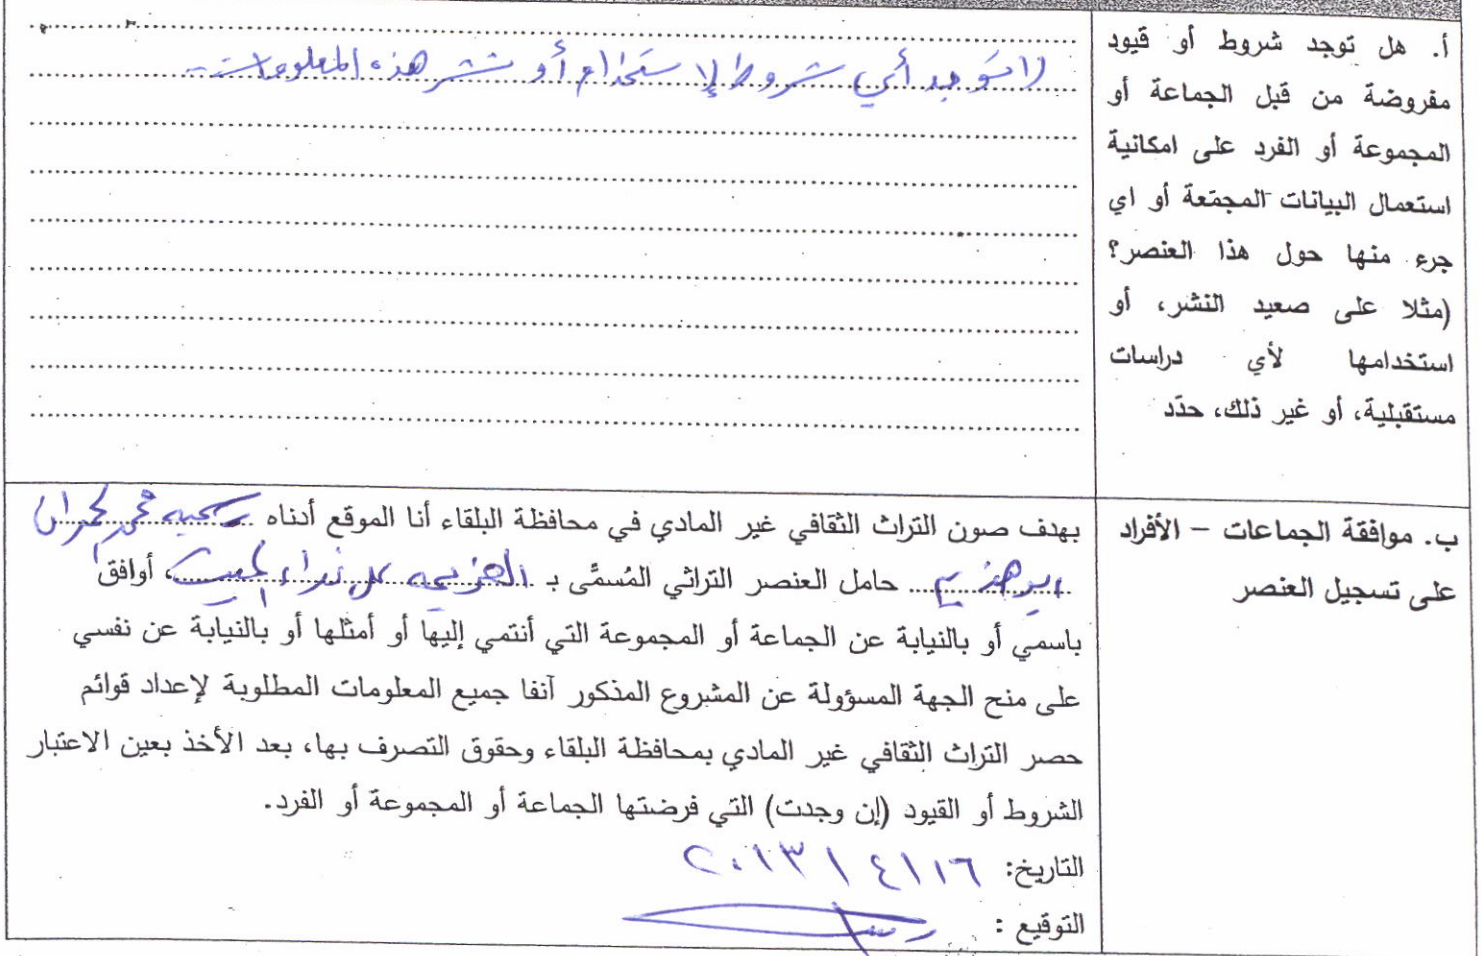 أ. هل توجد شروط أو قيود
مفروضة من قبل الجماعة أو
المجموعة أو الفرد على امكانية
استعمال البيانات المجمّعة أو اي
جرء منها حول هذا العنصر؟
(مثلا على صعيد النشر، أو
استخدامها لأي دراسات
مستقبلية، أو غير ذلك، حدّد
لا توجد أي شروط لإستخدام أو نشر هذه المعلومات
ب. موافقة الجماعات – الأفراد
على تسجيل العنصر
بهدف صون التراث الثقافي غير المادي في محافظة البلقاء أنا الموقع أدناه
حامل العنصر التراثي المُسمَّى بـ ، أوافق
باسمي أو بالنيابة عن الجماعة أو المجموعة التي أنتمي إليها أو أمثلها أو بالنيابة عن نفسي
على منح الجهة المسؤولة عن المشروع المذكور آنفا جميع المعلومات المطلوبة لإعداد قوائم
حصر التراث الثقافي غير المادي بمحافظة البلقاء وحقوق التصرف بها، بعد الأخذ بعين الاعتبار
الشروط أو القيود (إن وجدت) التي فرضتها الجماعة أو المجموعة أو الفرد.
التاريخ: ١٦/٤/٢٠١٣
التوقيع :